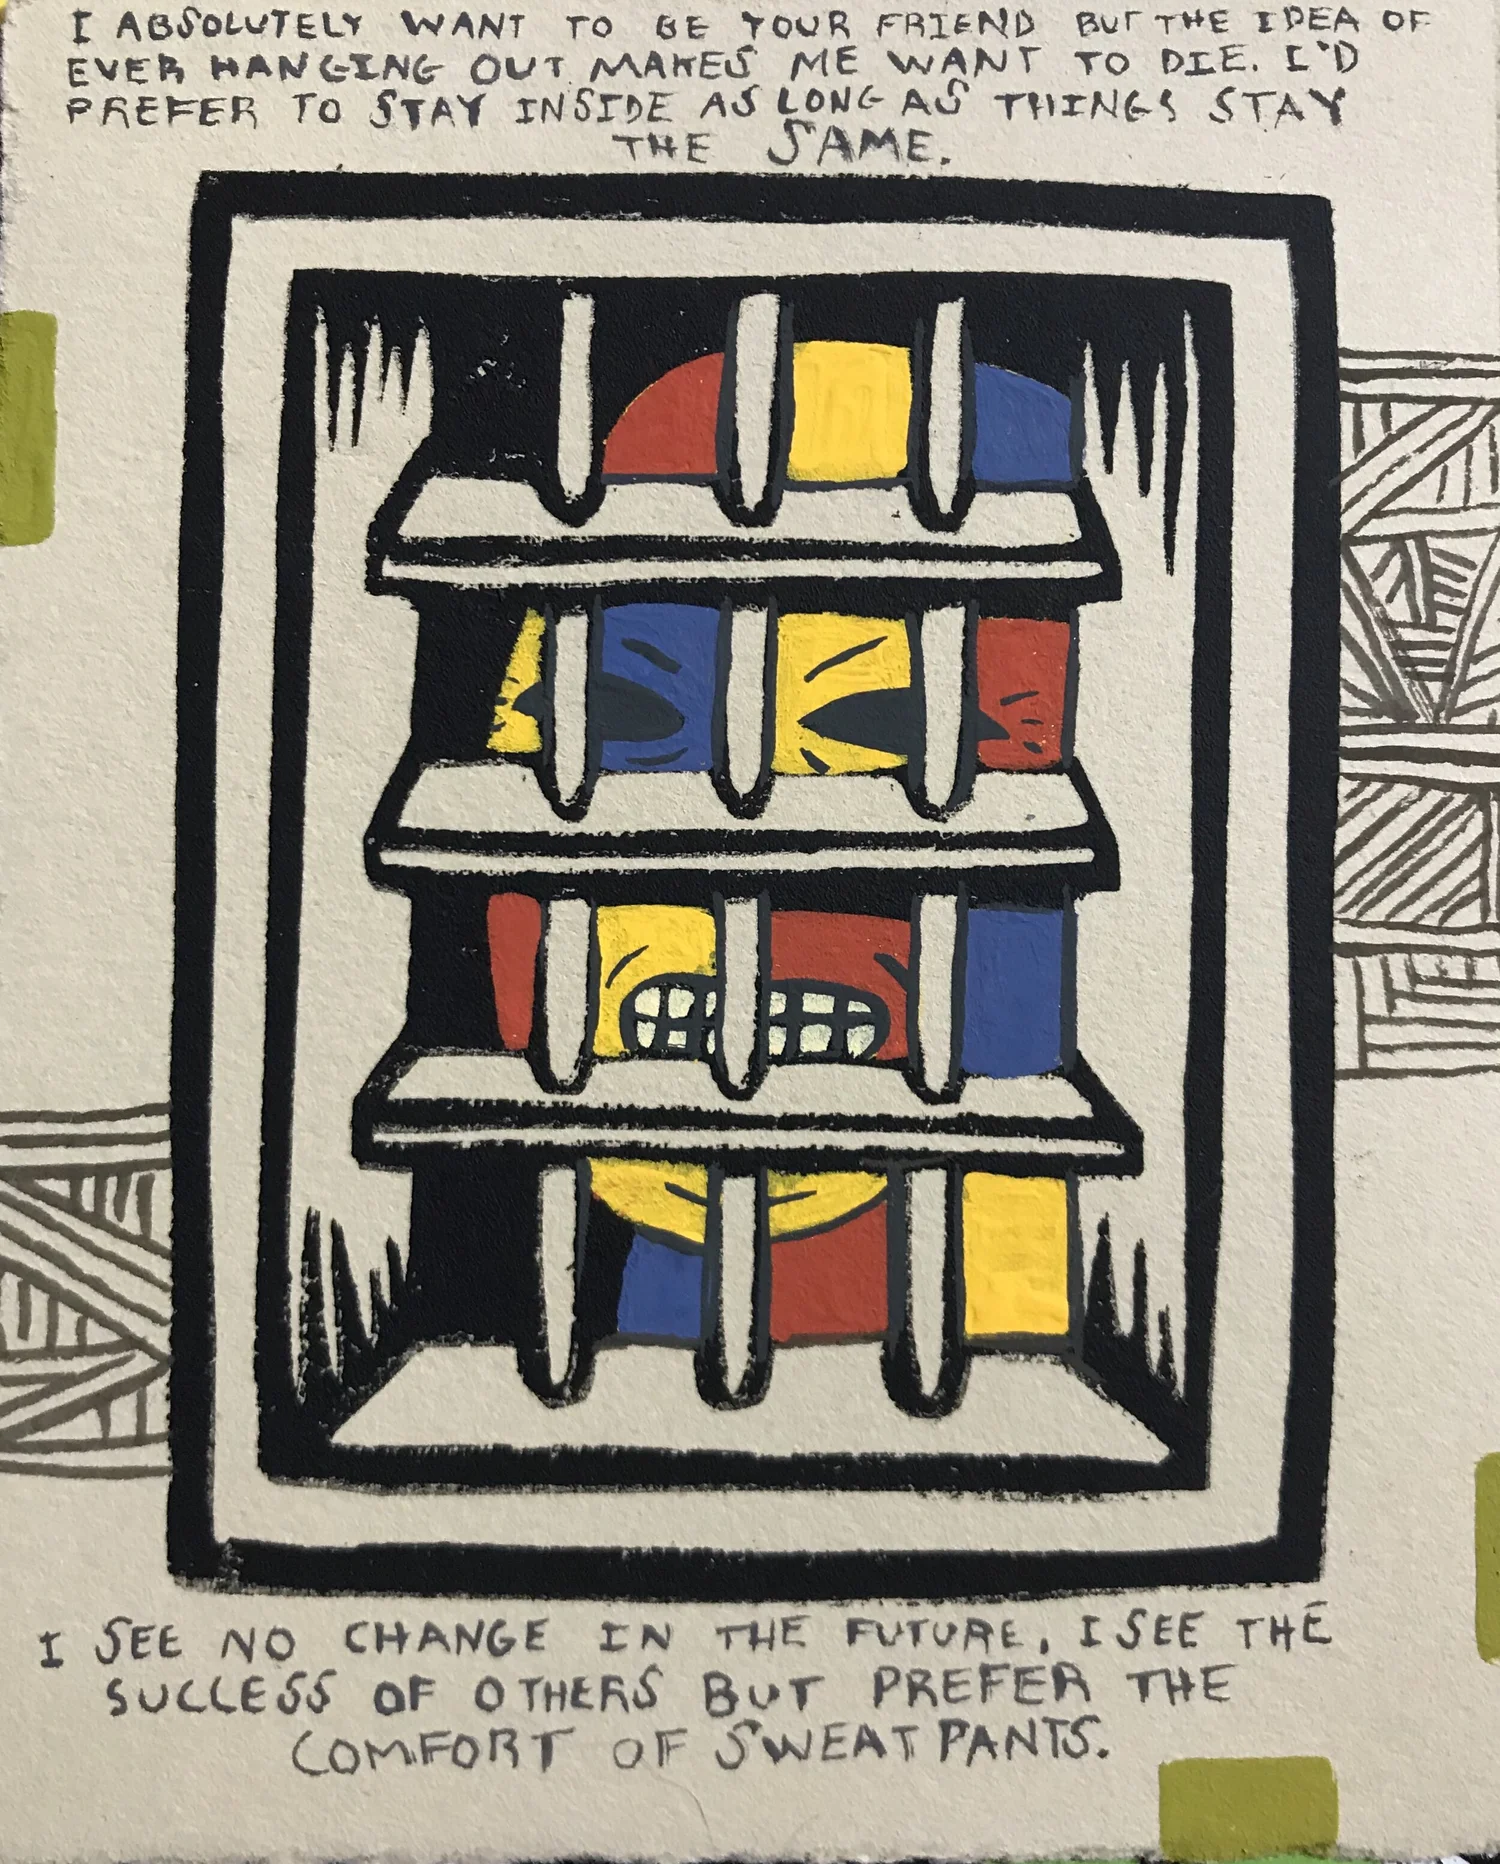 I ABSOLUTELY WANT TO BE YOUR FRIEND BUT THE IDEA OF
EVER HANGING OUT MAKES ME WANT TO DIE. I'D
PREFER TO STAY INSIDE AS LONG AS THINGS STAY
THE SAME.
I SEE NO CHANGE IN THE FUTURE. I SEE THE
SUCCESS OF OTHERS BUT PREFER THE
COMFORT OF SWEATPANTS.